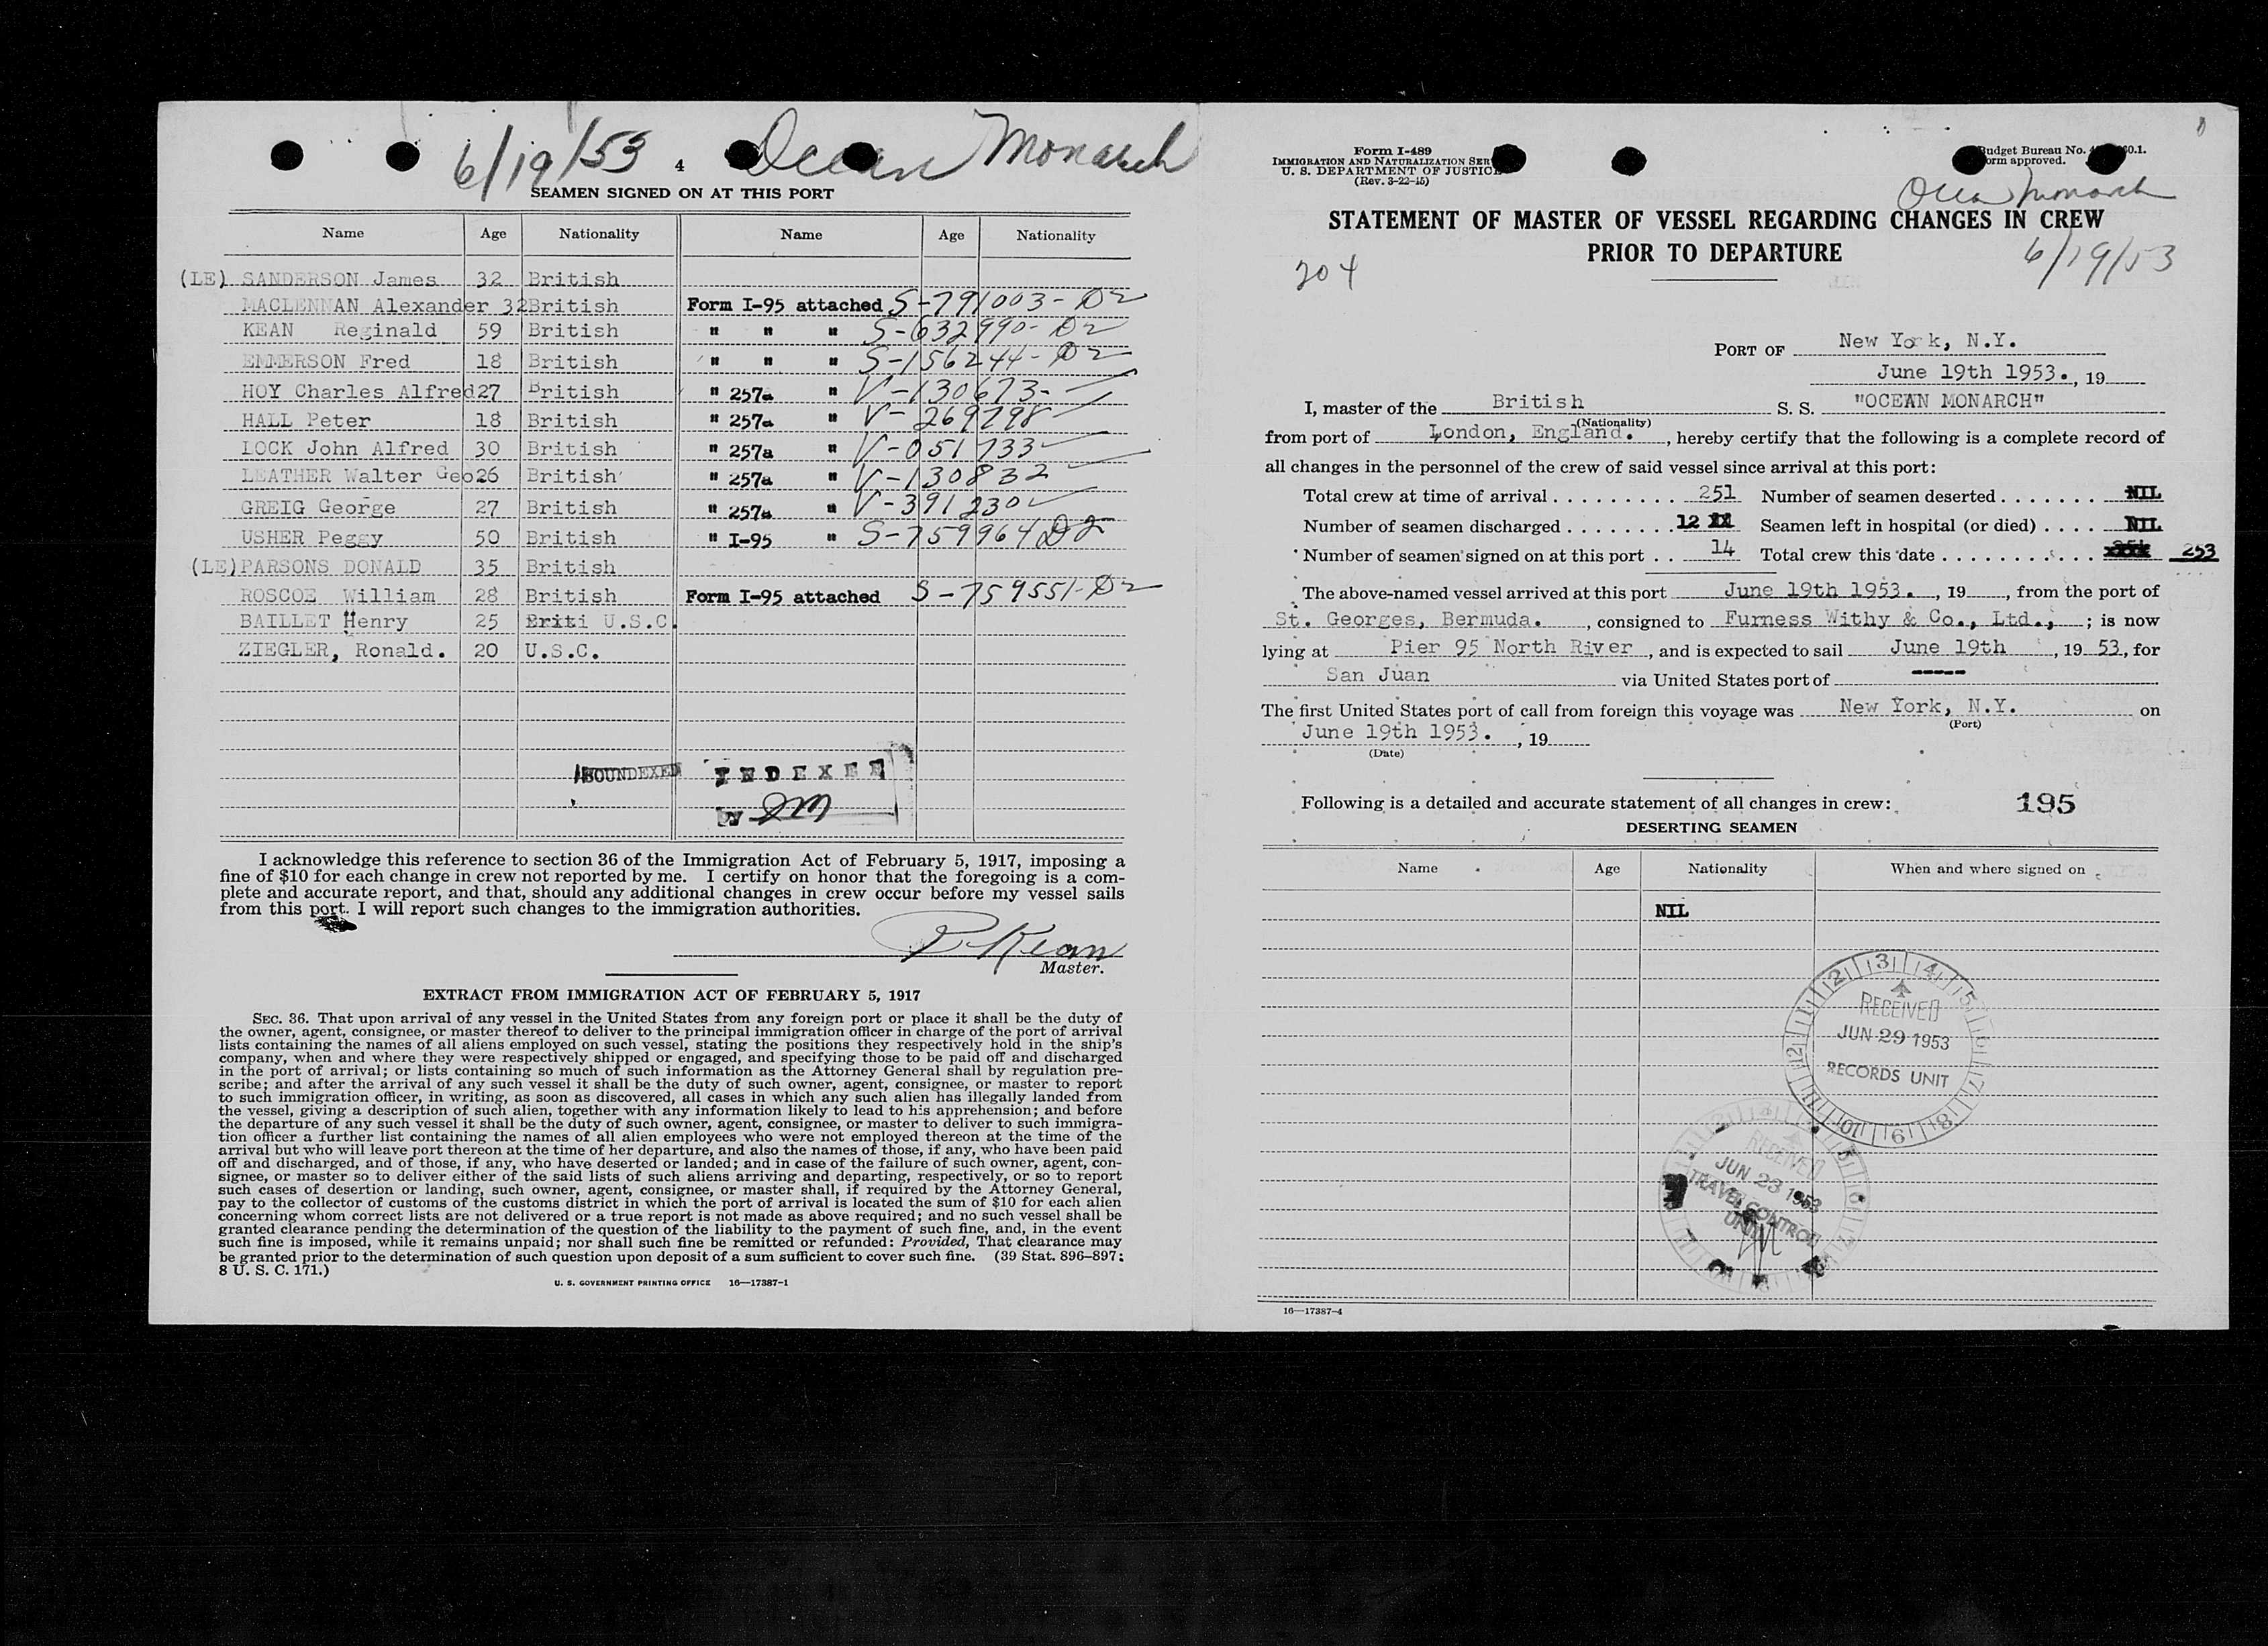 6/19/53 4 Ocean Monarch
SEAMEN SIGNED ON AT THIS PORT
Name Age Nationality Name Age Nationality
(LE) SANDERSON James 32 British
MACLENNAN Alexander 32 British Form I-95 attached S-791003-D2
KEAN Reginald 59 British " " " S-632990-D2
EMMERSON Fred 18 British " " " S-156244-D2
HOY Charles Alfred 27 British " 257a " V-130673-
HALL Peter 18 British " 257a " V-269798
LOCK John Alfred 30 British " 257a " V-051733
LEATHER Walter Geo 26 British " 257a " V-130832
GREIG George 27 British " 257a " V-391230
USHER Peggy 50 British " I-95 " S-759964 D2
(LE) PARSONS DONALD 35 British
ROSCOE William 28 British Form I-95 attached S-759551-D2
BAILLET Henry 25 Briti U.S.C.
ZIEGLER, Ronald. 20 U.S.C.
SOUNDEXED INDEXED
BY
I acknowledge this reference to section 36 of the Immigration Act of February 5, 1917, imposing a
fine of $10 for each change in crew not reported by me. I certify on honor that the foregoing is a com-
plete and accurate report, and that, should any additional changes in crew occur before my vessel sails
from this port. I will report such changes to the immigration authorities.
R Kean
Master.
EXTRACT FROM IMMIGRATION ACT OF FEBRUARY 5, 1917
SEC. 36. That upon arrival of any vessel in the United States from any foreign port or place it shall be the duty of
the owner, agent, consignee, or master thereof to deliver to the principal immigration officer in charge of the port of arrival
lists containing the names of all aliens employed on such vessel, stating the positions they respectively hold in the ship's
company, when and where they were respectively shipped or engaged, and specifying those to be paid off and discharged
in the port of arrival; or lists containing so much of such information as the Attorney General shall by regulation pre-
scribe; and after the arrival of any such vessel it shall be the duty of such owner, agent, consignee, or master to report
to such immigration officer, in writing, as soon as discovered, all cases in which any such alien has illegally landed from
the vessel, giving a description of such alien, together with any information likely to lead to his apprehension; and before
the departure of any such vessel it shall be the duty of such owner, agent, consignee, or master to deliver to such immigra-
tion officer a further list containing the names of all alien employees who were not employed thereon at the time of the
arrival but who will leave port thereon at the time of her departure, and also the names of those, if any, who have been paid
off and discharged, and of those, if any, who have deserted or landed; and in case of the failure of such owner, agent, con-
signee, or master so to deliver either of the said lists of such aliens arriving and departing, respectively, or so to report
such cases of desertion or landing, such owner, agent, consignee, or master shall, if required by the Attorney General,
pay to the collector of customs of the customs district in which the port of arrival is located the sum of $10 for each alien
concerning whom correct lists are not delivered or a true report is not made as above required; and no such vessel shall be
granted clearance pending the determination of the question of the liability to the payment of such fine, and, in the event
such fine is imposed, while it remains unpaid; nor shall such fine be remitted or refunded: Provided, That clearance may
be granted prior to the determination of such question upon deposit of a sum sufficient to cover such fine. (39 Stat. 896-897;
8 U. S. C. 171.)
U. S. GOVERNMENT PRINTING OFFICE 16—17387-1
Form I-489
IMMIGRATION AND NATURALIZATION SER
U. S. DEPARTMENT OF JUSTICE
(Rev. 3-22-45)
Budget Bureau No. 0.1.
orm approved.
Ocean Monarch
STATEMENT OF MASTER OF VESSEL REGARDING CHANGES IN CREW
PRIOR TO DEPARTURE
204 6/19/53
PORT OF New York, N.Y.
June 19th 1953. , 19
I, master of the British S. S. "OCEAN MONARCH"
(Nationality)
from port of London, England. , hereby certify that the following is a complete record of
all changes in the personnel of the crew of said vessel since arrival at this port:
Total crew at time of arrival . . . . . . . . . . 251 Number of seamen deserted . . . . . . . NIL
Number of seamen discharged . . . . . . . 12 Seamen left in hospital (or died) . . . . NIL
Number of seamen signed on at this port . . 14 Total crew this date . . . . . . . . . . . 253
The above-named vessel arrived at this port June 19th 1953. , 19 , from the port of
St. Georges, Bermuda. , consigned to Furness Withy & Co., Ltd., ; is now
lying at Pier 95 North River , and is expected to sail June 19th , 19 53, for
San Juan via United States port of -----
The first United States port of call from foreign this voyage was New York, N.Y. on
(Port)
June 19th 1953. , 19
(Date)
Following is a detailed and accurate statement of all changes in crew: 195
DESERTING SEAMEN
Name Age Nationality When and where signed on
NIL
RECEIVED
JUN 29 1953
RECORDS UNIT
RECEIVED
JUN 23 1953
TRAVEL CONTROL
UNIT
16—17387-4